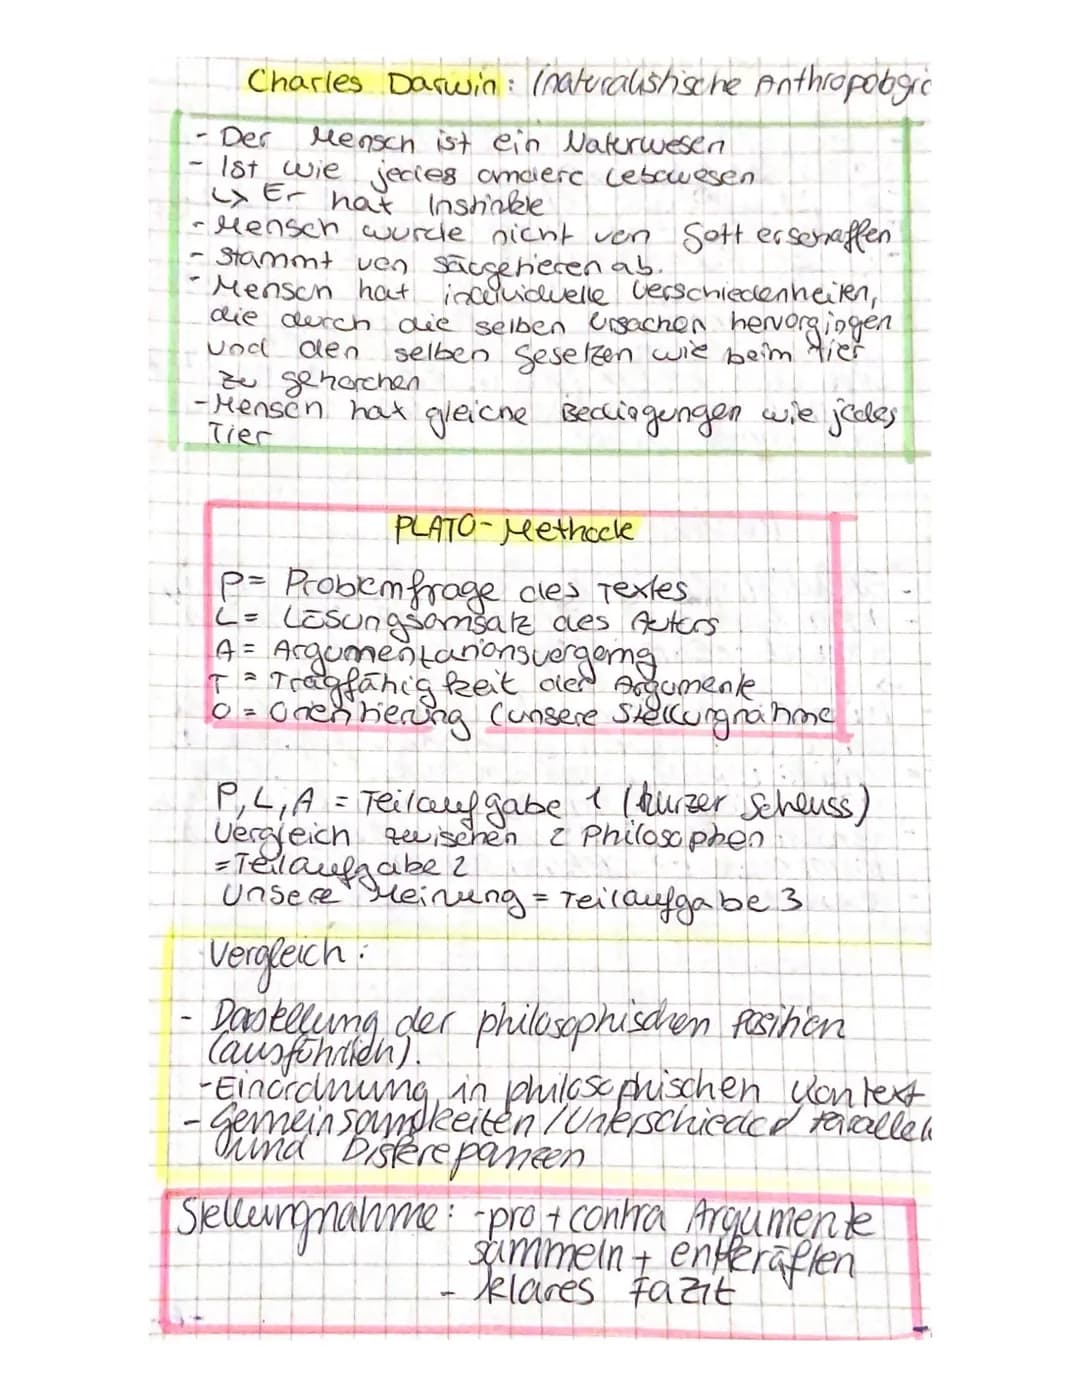 Charles Darwin: (naturalistische Anthropologie
- Der Mensch ist ein Naturwesen
- Ist wie jedes andere Lebewesen
↳ Er hat Instinkte
- Mensch wurde nicht von Gott erschaffen
- Stammt von Säugetieren ab.
- Mensch hat individuelle Verschiedenheiten,
die durch die selben Ursachen hervorgingen
und den selben Gesetzen wie beim Tier
zu gehorchen
- Mensch hat gleiche Bedingungen wie jedes
Tier
PLATO-Methode
P = Problemfrage des Textes
L = Lösungsansatz des Autors
A = Argumentationsvorgang
T = Tragfähigkeit der Argumente
O = Orientierung (unsere Stellungnahme
P, L, A = Teilaufgabe 1 (kurzer Schluss)
Vergleich zwischen 2 Philosophen
= Teilaufgabe 2
Unsere Meinung = Teilaufgabe 3
Vergleich:
- Darstellung der philosophischen Position
(ausführlich).
- Einordnung in philosophischen Kontext
- Gemeinsamkeiten / Unterschiede Parallelen
und Diskrepanzen
Stellungnahme: - pro + contra Argumente
sammeln + entkräften
- klares Fazit